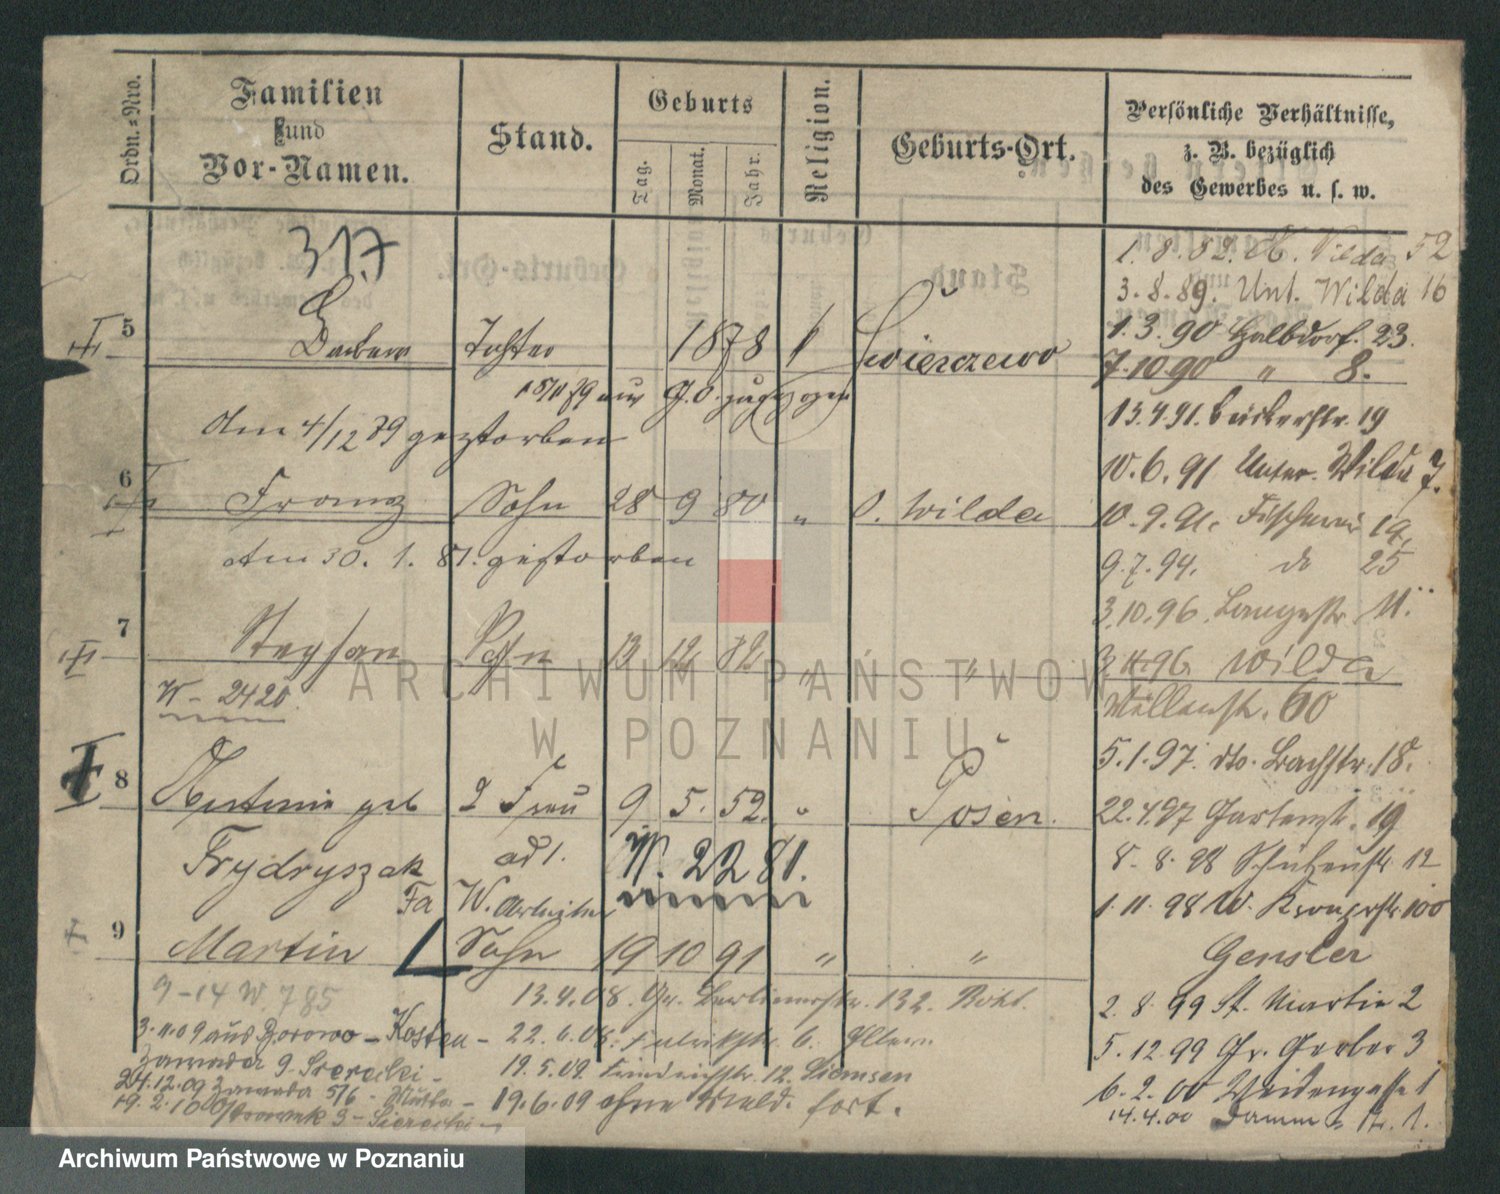 Ordn.-Nro.
Familien
und
Vor-Namen.
Stand.
Geburts
Tag.
Monat.
Jahr.
Religion.
Geburts-Ort.
Persönliche Verhältnisse,
z. B. bezüglich
des Gewerbes u. s. w.
317
5
Tochter 1878
Am 4/12 89 gestorben
6
Franz Sohn 28 9 80 " O. Wilda
Am 30. 1. 81. gestorben
7
Stephan 12 82 " "
W - 2420
8
Antonie geb 2 Frau 9 5. 52. " Posen.
Frydryszak
adl. W. 2281.
Fa W. Arbeiter
9
Martin Sohn 19 10 91 " "
9-14 W. 785
13.4.08. Gr. Berlinerstr. 132.
3.11.09 aus Borowo - Kosten - 22.6.08.
Zawada 9. Sieracki - 19.5.09. Friedrichstr. 12. Siemsen
24.12.09 Zawada 5/6 - 19.6.09 ohne Meld. fort.
19.2.10 3 - Sieracki -
1.8.82. O. Wilda 52
3.8.89. Unt. Wilda 16
1.3.90 Halbdorf. 23.
7.10.90 " 8.
13.4.91. Bäckerstr. 19
10.6.91 Unter. Wilda 7.
10.9.91. Fischerei 19.
9.7.94. do 25
3.10.96. Langestr. 11.
3.11.96. Wilda
60
5.1.97. dto. Bachstr. 18.
22.4.97 Gartenstr. 19
8.8.98 Schützenstr 12
1.11.98 W. Kronprstr. 100
Gensler
2.8.99 St. Martin 2
5.12.99 Gr. Gerber 3
6.2.00 Weidengasse 1
14.4.00 Damm
ARCHIWUM PAŃSTWOW
W POZNANIU
Archiwum Państwowe w Poznaniu